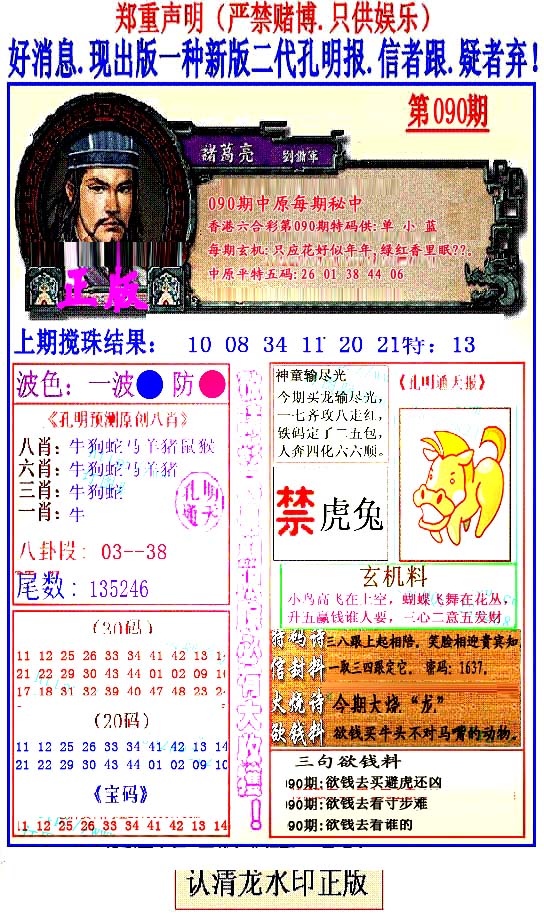 郑重声明（严禁赌博.只供娱乐）
好消息.现出版一种新版二代孔明报.信者跟.疑者弃!
第090期
諸葛亮 劉備軍
090期中原每期秘中
香港六合彩第090期特码供:单 小 蓝
每期玄机:只应花好似年年,绿红香里眠??。
中原平特五码:26 01 38 44 06
正版
上期搅珠结果: 10 08 34 11 20 21特: 13
波色: 一波 防
《孔明预测原创八肖》
八肖: 牛狗蛇马羊猪鼠猴
六肖: 牛狗蛇马羊猪
三肖: 牛狗蛇
一肖: 牛
孔明通天
八卦段: 03--38
尾数: 135246
(30码)
11 12 25 26 33 34 41 42 13 14
21 22 29 30 43 44 01 02 09 10
17 18 31 32 39 40 47 48 23 24
(20码)
11 12 25 26 33 34 41 42 13 14
21 22 29 30 43 44 01 02 09 10
《宝码》
11 12 25 26 33 34 41 42 13 14
神童输尽光
今期买龙输尽光,
一七齐攻八走红,
铁码定了二五包,
人奔四化六六顺。
《孔明通天报》
禁 虎兔
玄机料
小鸟高飞在上空,蝴蝶飞舞在花丛,
升五赢钱谁人要,三心二意五发财
特码诗 三八跟上起相陪,笑脸相迎贵宾知
信封料 一取三四跟定它。密码:1637,
火烧诗 今期大烧“龙”
欲钱料 欲钱买牛头不对马嘴的动物。
三句欲钱料
090期:欲钱去买避虎还凶
090期:欲钱去看寸步难
90期:欲钱去看谁的
认清龙水印正版